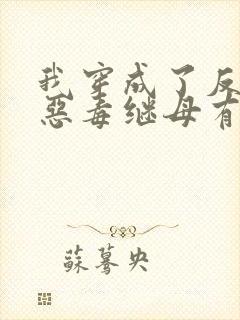 我穿成了反
恶毒继母有
蘇驀央